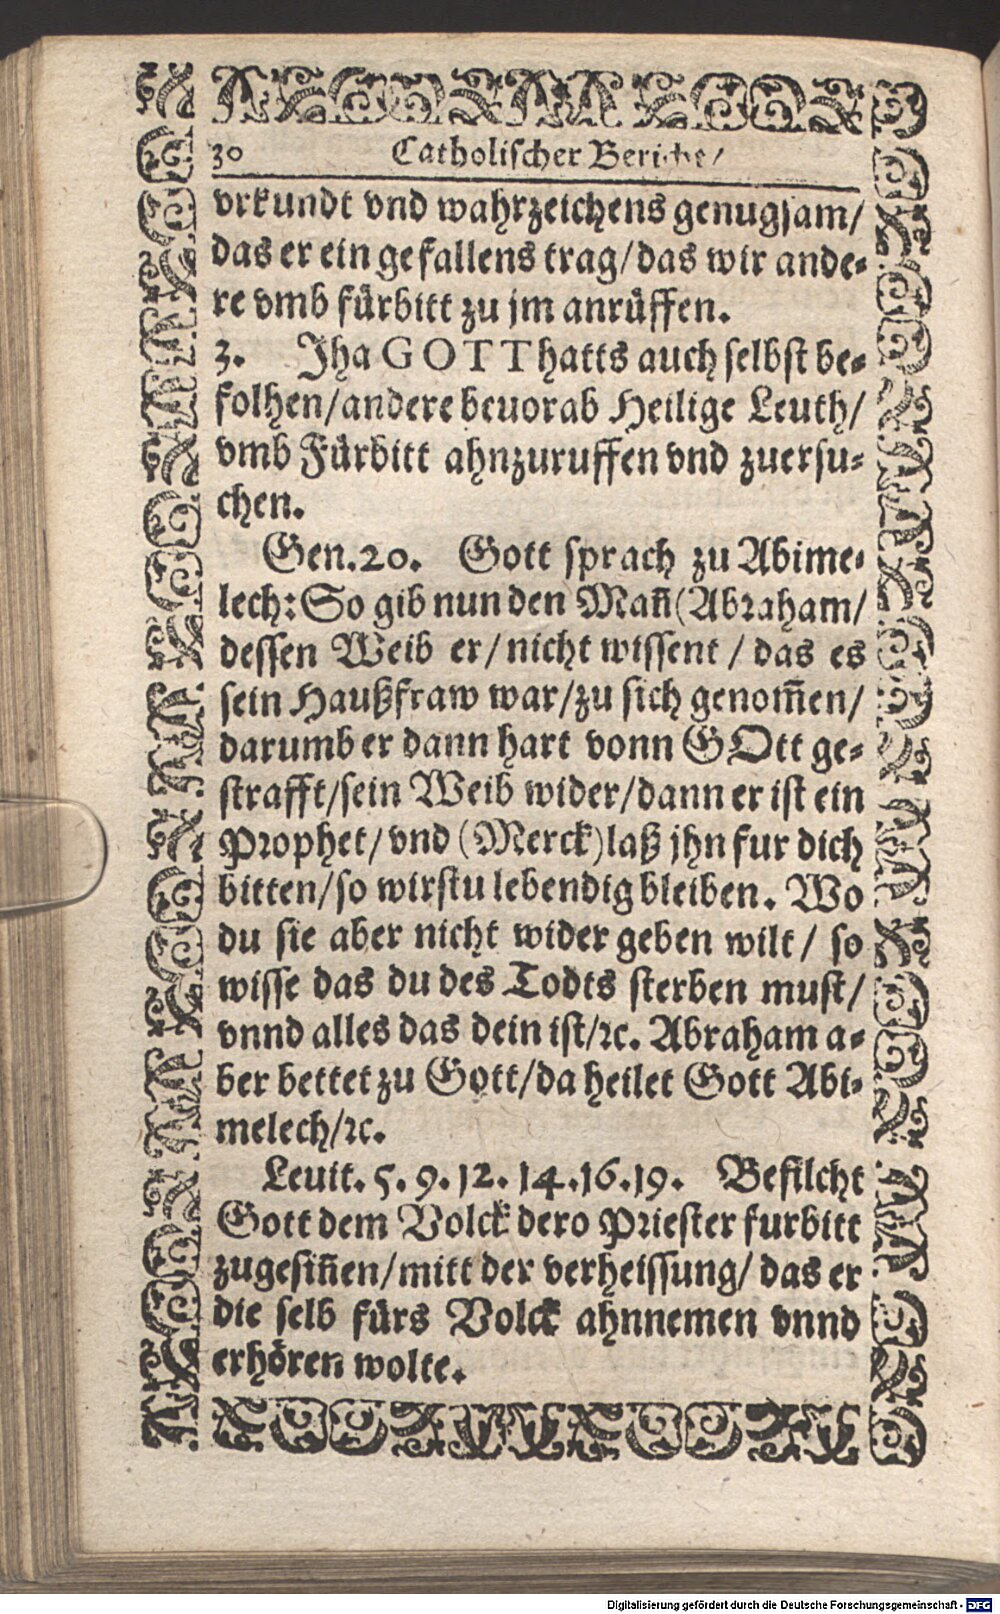 30 Catholischer Bericht/
vrkundt vnd wahrzeichens genugsam/
das er ein gefallens trag/das wir ande-
re vmb fürbitt zu jm anrüffen.
3. Jha GOTT hatts auch selbst be-
folhen/andere beuorab Heilige Leuth/
vmb Fürbitt ahnzuruffen vnd zuersu-
chen.
Gen.20. Gott sprach zu Abime-
lech: So gib nun den Mañ (Abraham/
dessen Weib er/nicht wissent/das es
sein Haußfraw war/zu sich genom̃en/
darumb er dann hart vonn GOtt ge-
strafft/sein Weib wider/dann er ist ein
Prophet/vnd (Merck) laß jhn fur dich
bitten/so wirstu lebendig bleiben. Wo
du sie aber nicht wider geben wilt/ so
wisse das du des Todts sterben must/
vnnd alles das dein ist/ꝛc. Abraham a-
ber bettet zu Gott/da heilet Gott Abi-
melech/ꝛc.
Leuit. 5. 9. 12. 14. 16. 19. Befilcht
Gott dem Volck dero Priester furbitt
zugesiñen/mitt der verheissung/das er
die selb fürs Volck ahnnemen vnnd
erhören wolte.
Digitalisierung gefördert durch die Deutsche Forschungsgemeinschaft - DFG